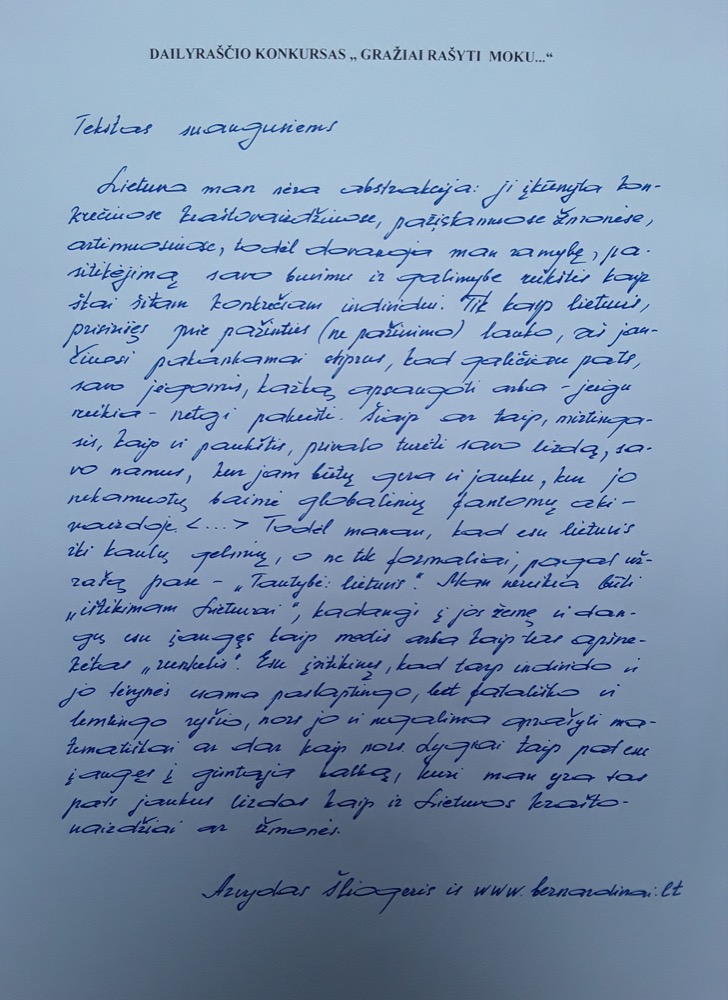 DAILYRAŠČIO KONKURSAS „ GRAŽIAI RAŠYTI MOKU...“
Tekstas suaugusiems
Lietuva man nėra abstrakcija: ji įkūnyta kon-
krečiuose kraštovaizdžiuose, pažįstamuose žmonėse,
artimuosiuose, todėl dovanoja man ramybę, pa-
sitikėjimą savo buvimu ir galimybe reikštis kaip
štai šitam konkrečiam individui. Tik kaip lietuvis,
prisirišęs prie pažinties (ne pažinimo) lauko, aš jau-
čiuosi pakankamai stiprus, kad galėčiau pats,
savo jėgomis, kažką apsaugoti arba – jeigu
reikia – netgi pakeisti. Šiaip ar taip, mirtinga-
sis, kaip ir paukštis, privalo turėti savo lizdą, sa-
vo namus, kur jam būtų gera ir jauku, kur jo
nekamuotų baimė globalinių fantomų aki-
vaizdoje. <...> Todėl manau, kad esu lietuvis
iki kaulų gelmių, o ne tik formaliai, pagal už-
rašą pase – „Tautybė: lietuvis“. Man nereikia būti
„ištikimam Lietuvai“, kadangi į jos žemę ir dan-
gų esu įaugęs kaip medis arba kaip tas apsine-
kėtas „runkelis“. Esu įsitikinęs, kad tarp individo ir
jo tėvynės esama paslaptingo, bet fatališko ir
lemtingo ryšio, nors jo ir negalima aprašyti ma-
tematiškai ar dar kaip nors. Lygiai taip pat esu
įaugęs į gimtąja kalbą, kuri man yra tas
pats jaukus lizdas kaip ir Lietuvos krašto-
vaizdžiai ar žmonės.
Arvydas Šliogeris iš www.bernardinai.lt